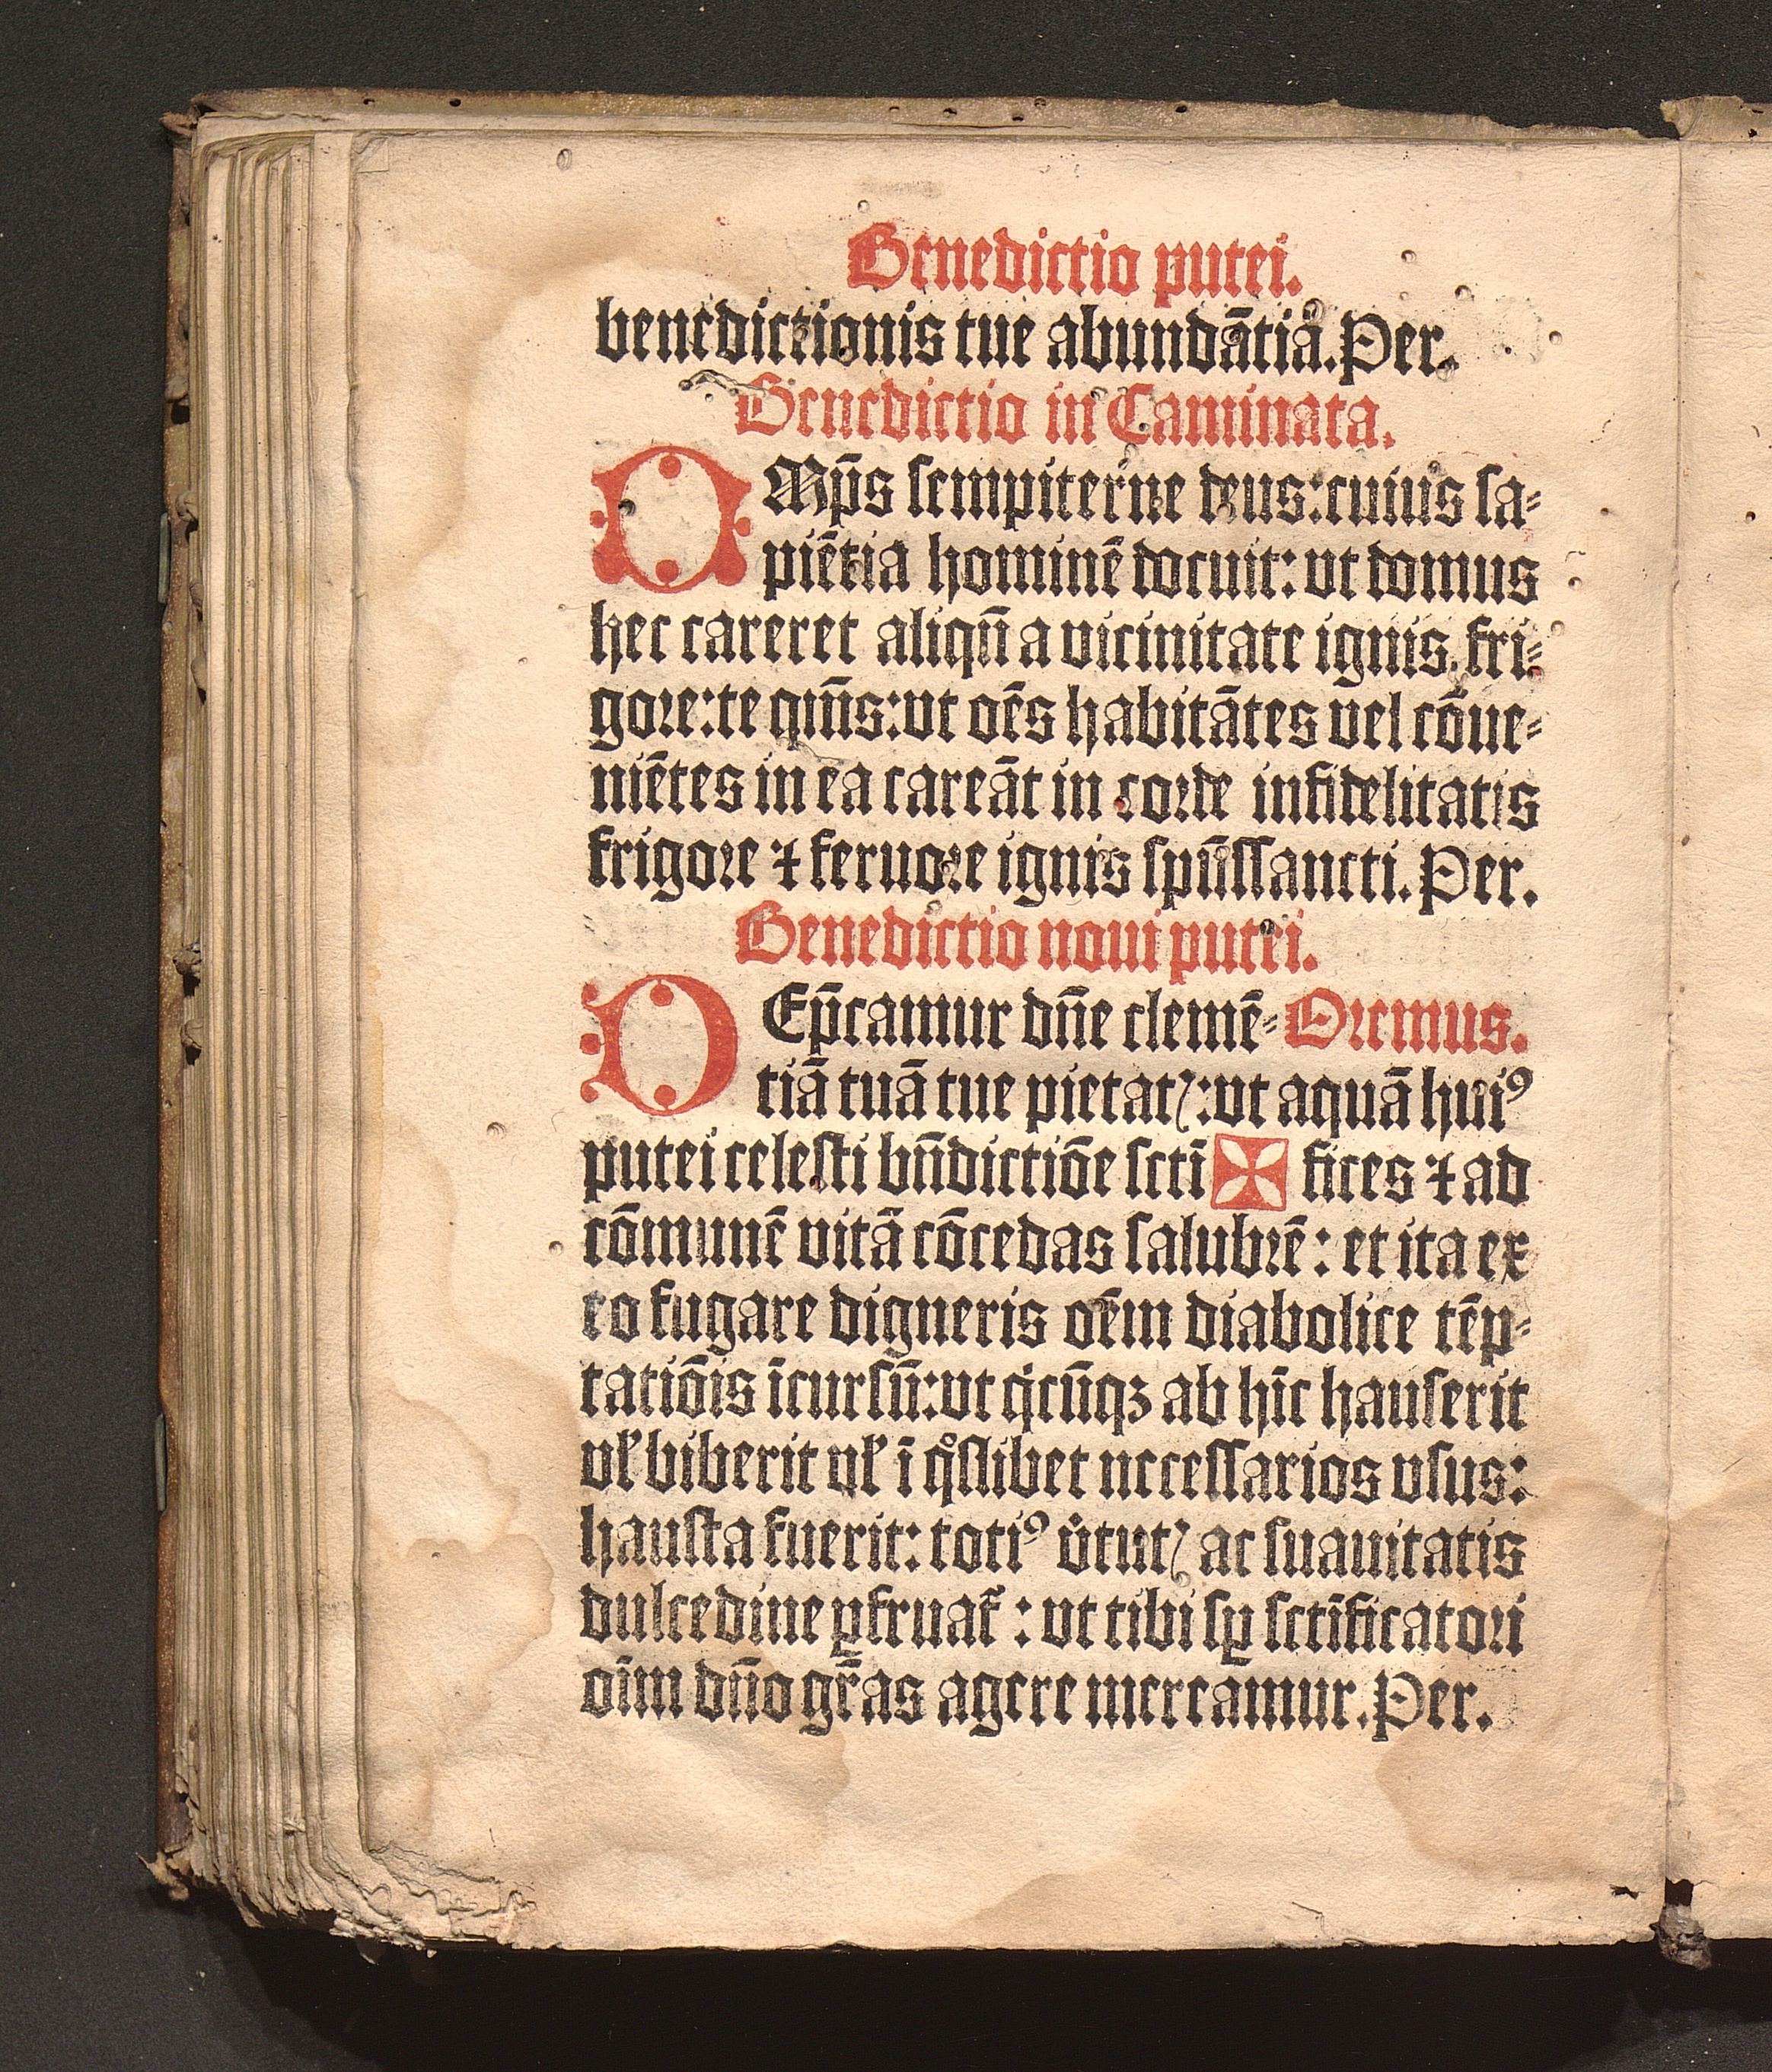 Benedictio putei.
benedictionis tue abundātiā. Per.
Benedictio in Caminata.
OMp̄s sempiterne deus: cuius sa⸗
piētia hominē docuit: vt domus
hec careret aliqn̄ a vicinitate ignis. fri⸗
gore: te qm̄s: vt oēs habitātes vel cōue⸗
niētes in ea careāt in corde infidelitatis
frigore ⁊ feruore ignis spūssancti. Per.
Benedictio noui putei.
DEp̄camur dn̄e clemē⸗ Oremus.
tiā tuā tue pietatꝭ: vt aquā huiꝰ
putei celesti bn̄dictiōe scti ✠ fices ⁊ ad
cōmunē vitā cōcedas salubrē: et ita ex
eo fugare digneris oēm diabolice tēp⸗
tatiōis īcursū: vt qͥcūqꝫ ab hīc hauserit
vꝉ biberit vꝉ ī qͦslibet necessarios vsus:
hausta fuerit: totiꝰ v̓tutꝭ ac suauitatis
dulcedine ꝑfruat᷑: vt tibi sꝑ sctīficatori
oīm dn̄o gr̄as agere mereamur. Per.